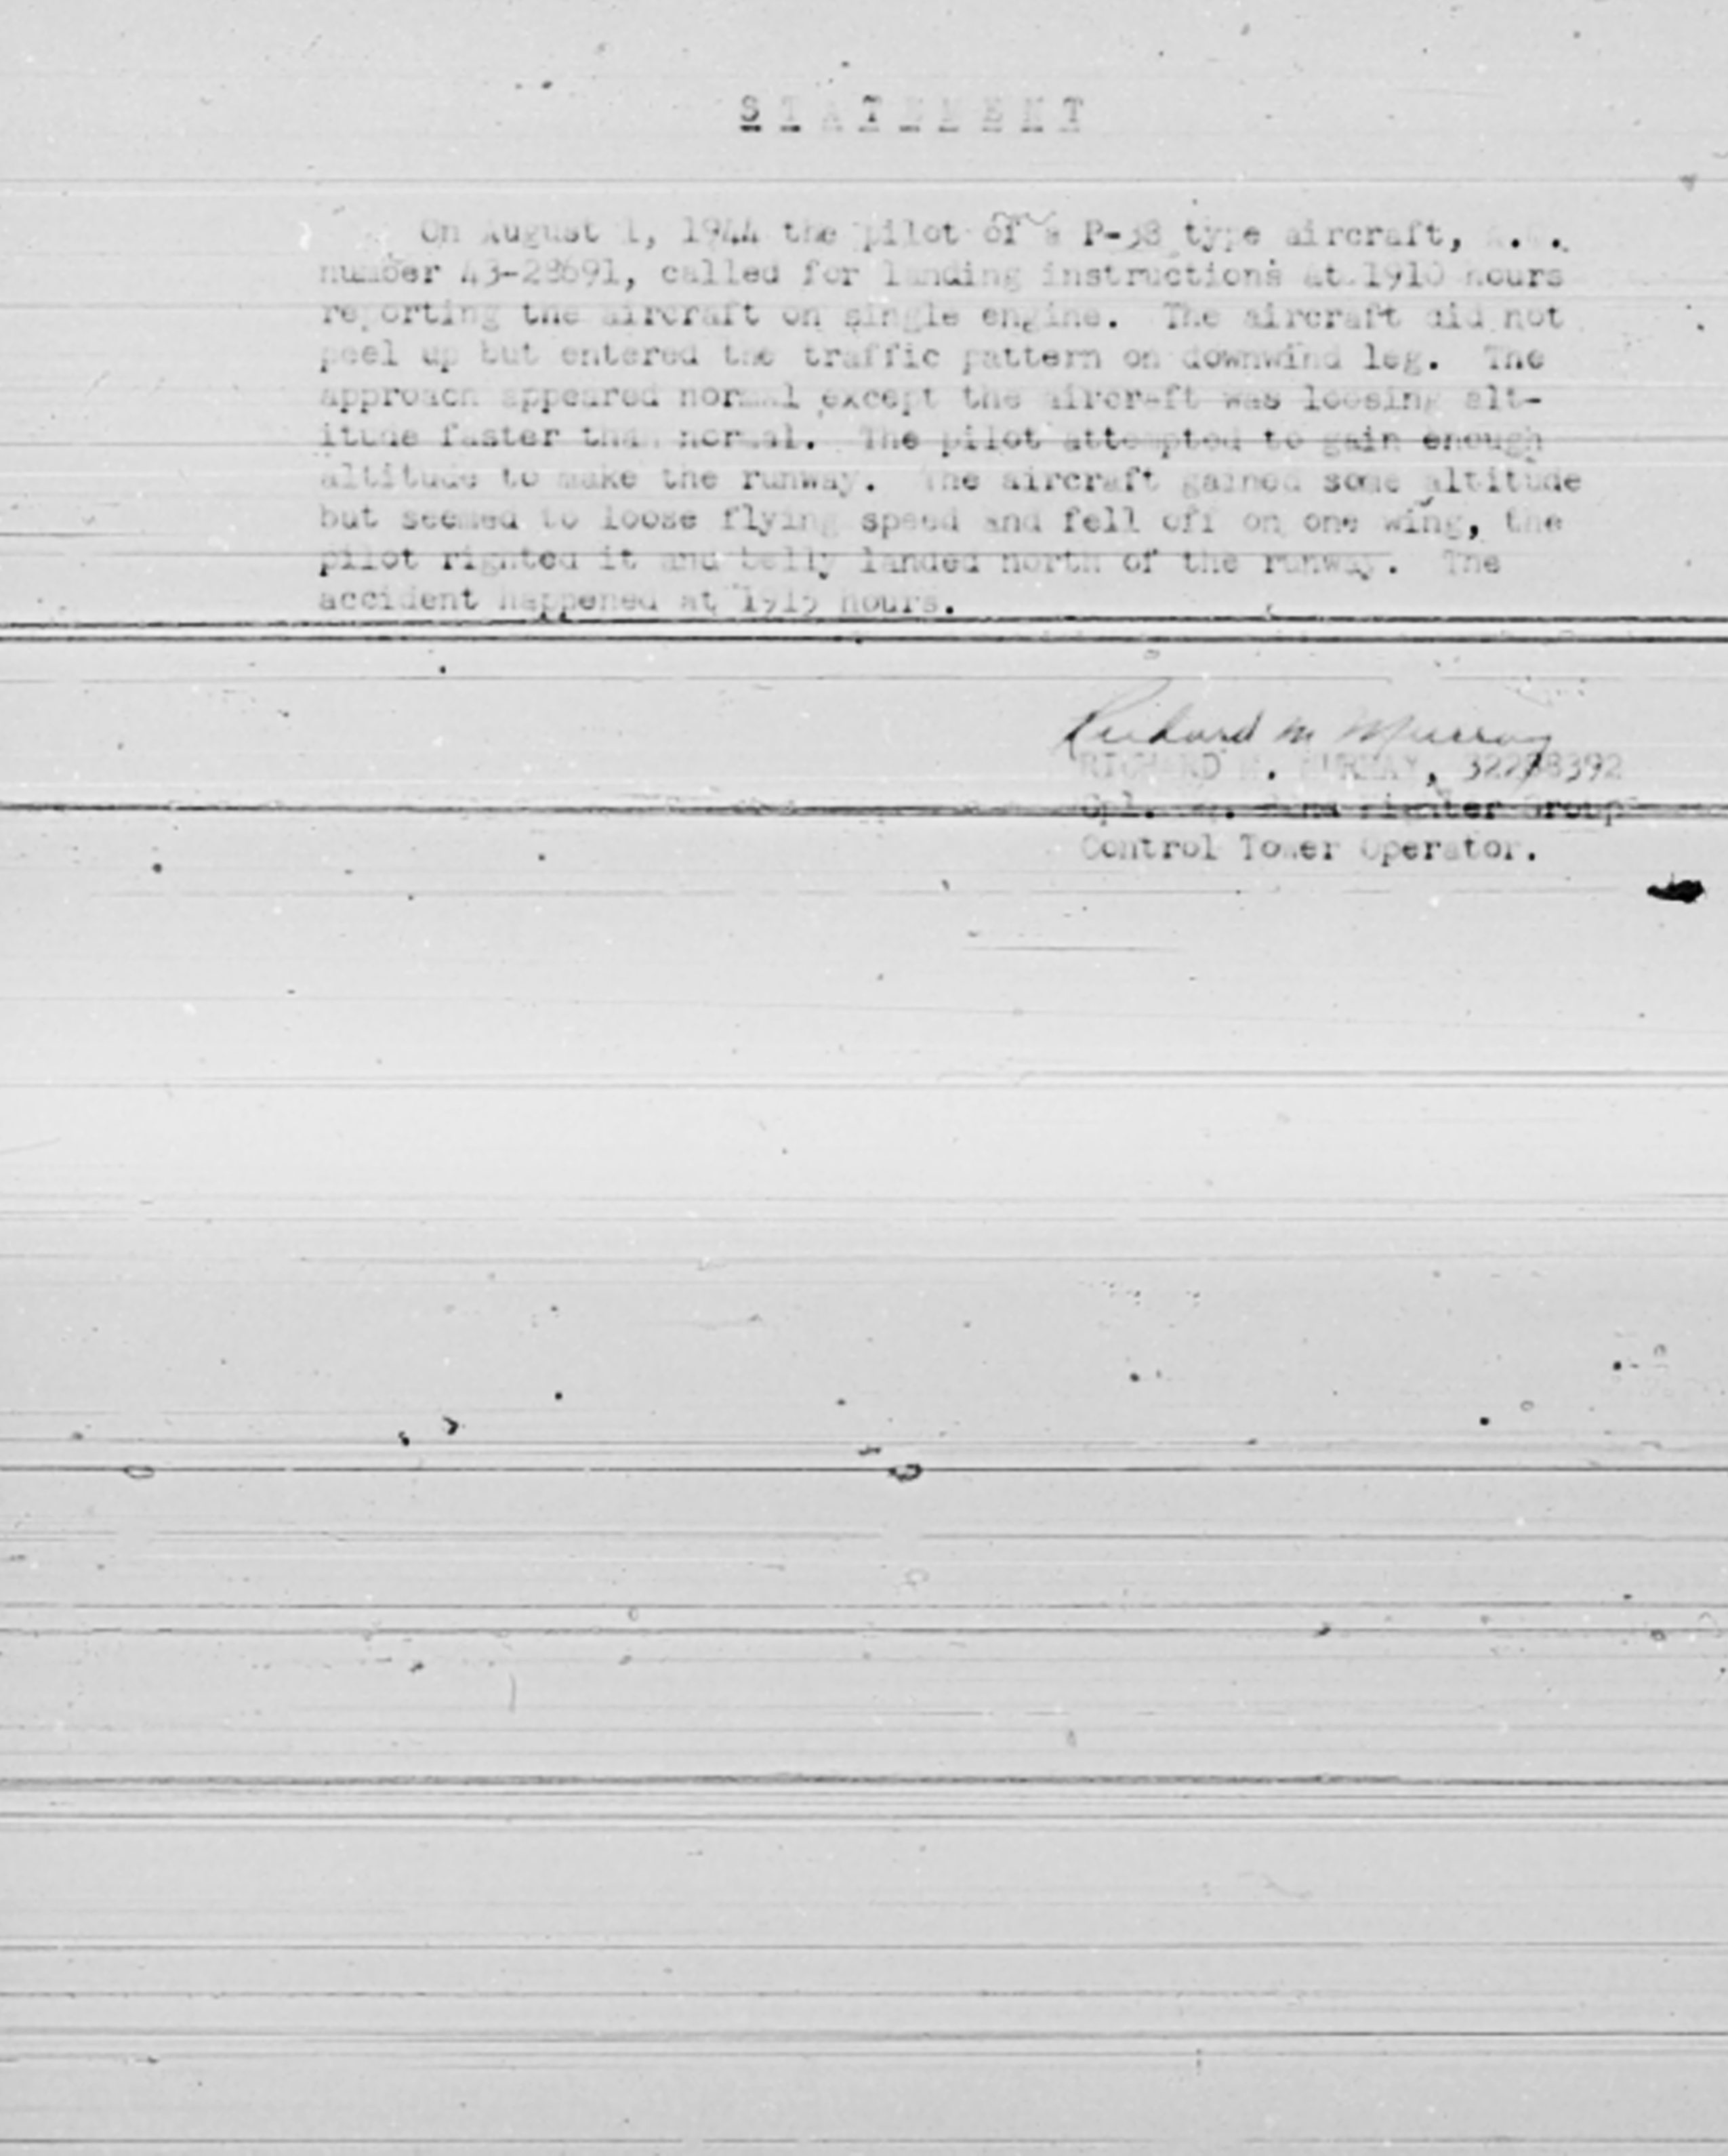 STATEMENT
On August 1, 1944 the pilot of a P-38 type aircraft,
number 43-28691, called for landing instructions at 1910 hours
reporting the aircraft on single engine. The aircraft did not
peel up but entered the traffic pattern on downwind leg. The
approach appeared normal except the aircraft was loosing alt-
itude faster than normal. The pilot attempted to gain enough
altitude to make the runway. The aircraft gained some altitude
but seemed to loose flying speed and fell off on one wing, the
pilot righted it and belly landed north of the runway. The
accident happened at 1915 hours.
Richard M Murray
RICHARD M. MURRAY,
Cpl. Fighter Group
Control Tower Operator.